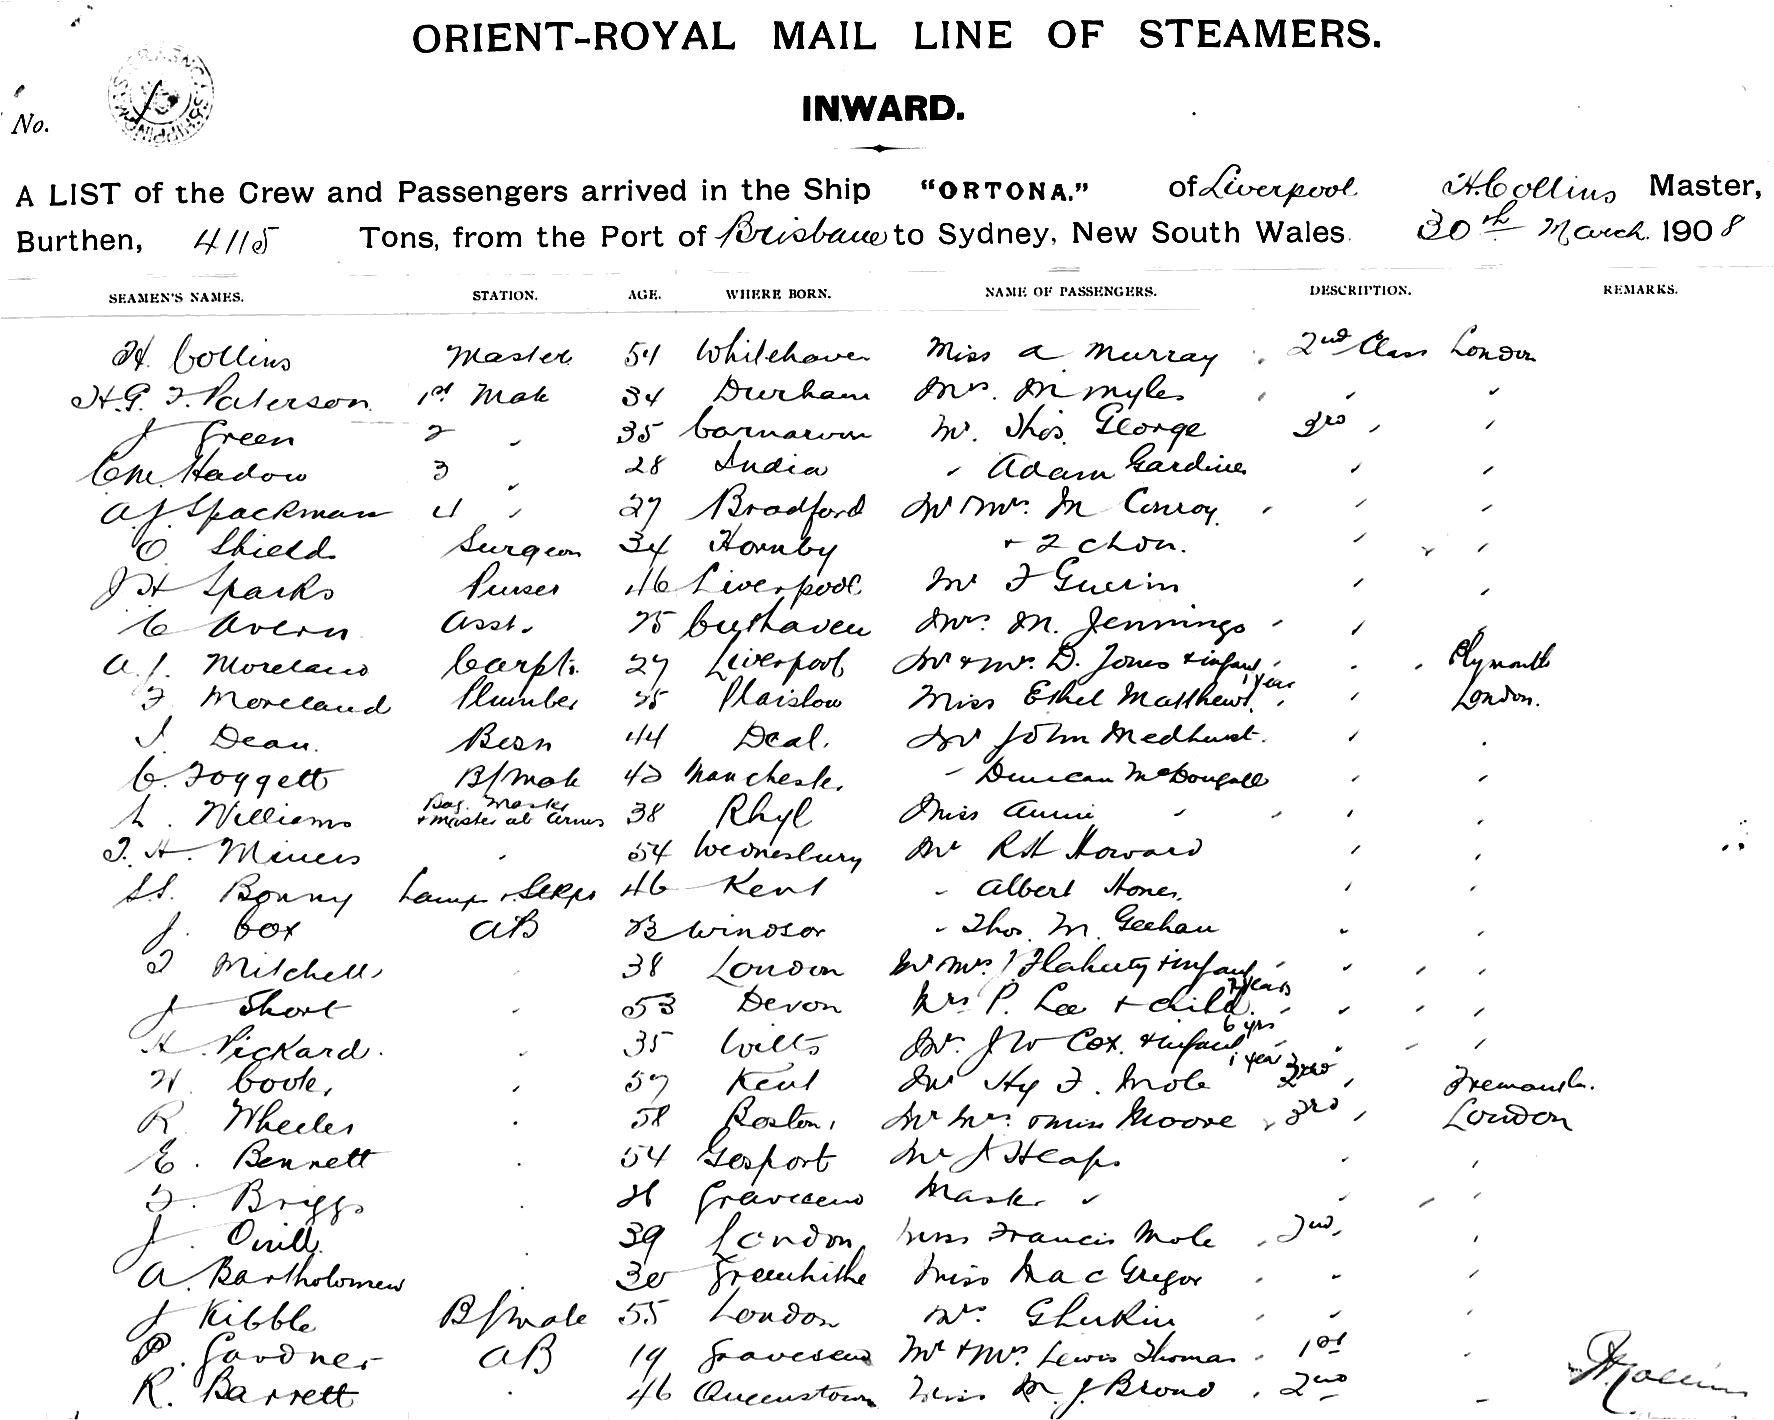 ORIENT-ROYAL MAIL LINE OF STEAMERS.
INWARD.
No.
A LIST of the Crew and Passengers arrived in the Ship "ORTONA." of Liverpool H. Collins Master,
Burthen, 4115 Tons, from the Port of Brisbane to Sydney, New South Wales. 30th March 1908
SEAMEN'S NAMES. STATION. AGE. WHERE BORN. NAME OF PASSENGERS. DESCRIPTION. REMARKS.
H. Collins Master 54 Whitehaven Miss A Murray 2nd Class London
H.G. F. Paterson 1st Mate 34 Durham Mrs. M Myles " "
J Green 2 " 35 Carnarvon Mr. Thos. George 3rd " "
C M. Hadow 3 " 28 India " Adam Gardiner " "
A.J. Spackman 4 " 27 Bradford Mr Mrs. M Conroy " "
O Shields Surgeon 34 Hornby + 2 chdn. " "
J H Sparks Purser 46 Liverpool Mr F Guerin " "
C Avern Asst. 25 Cuxhaven Mrs. M. Jennings " "
A. J. Moreland Carptr. 27 Liverpool Mr & Mrs. D. Jones & infant 1 year " Plymouth
F Moreland Plumber 25 Plaistow Miss Ethel Matthews " London.
J. Dean Bosn 44 Deal. Mr John Medhurst. " "
C. Foggett B/Mate 42 Manchester " Duncan McDougall " "
L. Williams Bag. Master & Master at Arms 38 Rhyl Miss Annie " " "
T. H. Miners " 54 Wednesbury Mr R H Howard " "
S.S. Bonny Lamps & Skrps 46 Kent " Albert Hones. " "
J. Cox AB Windsor " Thos. M. Geehan " "
T Mitchell " 38 London Mr Mrs. Flaherty & infant " "
J Short " 53 Devon Mrs P. Lee & child 6 yrs " "
H Pickard. " 35 Wilts Mr. J W Cox. & infant 1 year " "
W Cook. " 57 Kent Mr Hy F. Mole 2nd " Fremantle.
R Wheeler " 58 Boston. Mr Mrs. & Miss Moore 3rd " London
E. Bennett " 54 Gosport Mr J Heaps " "
F. Briggs " Gravesend Master " " "
J. Ovill " 39 London Miss Francis Mole 2nd " "
A. Bartholomew 30 Greenhithe Miss MacGregor " "
J Kibble B/Mate 55 London Mr. G Lurkin " "
P. Gardner AB 19 Gravesend Mr & Mrs. Lewis Thomas 1st "
R. Barrett " 46 Queenstown Miss M. J. Brond 2nd "
H. Collins